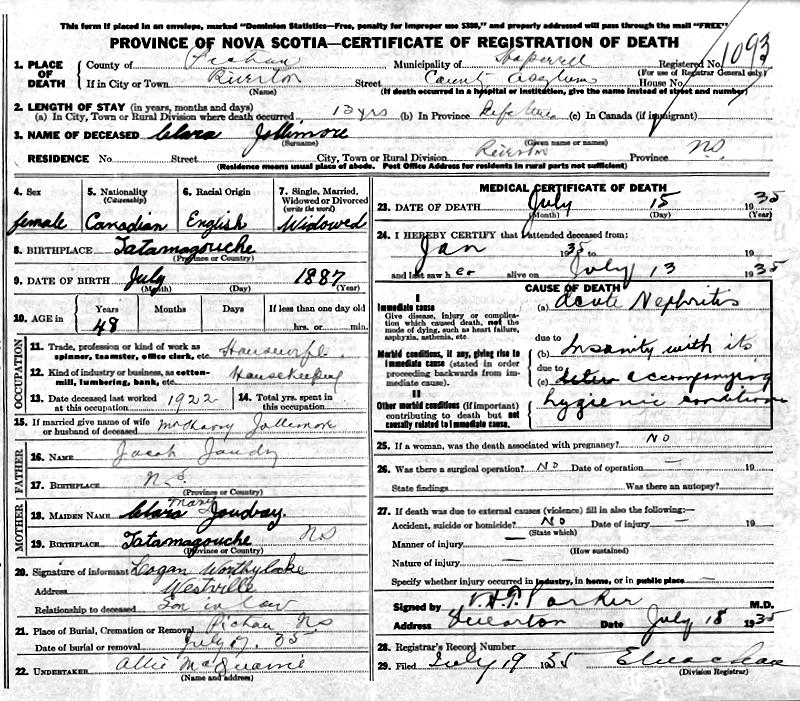 This form if placed in an envelope, marked "Dominion Statistics—Free, penalty for improper use $300," and properly addressed will pass through the mail "FREE"
PROVINCE OF NOVA SCOTIA—CERTIFICATE OF REGISTRATION OF DEATH
1093
1. PLACE OF DEATH
County of Pictou Municipality of Registered No.
(For use of Registrar General only)
If in City or Town Riverton Street County Asylum House No
(Name) (If death occurred in a hospital or institution, give the name instead of street and number)
2. LENGTH OF STAY (in years, months and days)
(a) In City, Town or Rural Division where death occurred 13 yrs (b) In Province Life time (c) In Canada (if immigrant)
3. NAME OF DECEASED Clara Jollimore
(Surname) (Given name or names)
RESIDENCE No. Street City, Town or Rural Division Riverton Province N.S.
(Residence means usual place of abode. Post Office Address for residents in rural parts not sufficient)
4. Sex
female
5. Nationality
(Citizenship)
Canadian
6. Racial Origin
English
7. Single, Married, Widowed or Divorced
(write the word)
Widowed
8. BIRTHPLACE Tatamagouche
(Province or Country)
9. DATE OF BIRTH July 1887
(Month) (Day) (Year)
10. AGE in
Years Months Days If less than one day old
48 hrs. or min.
OCCUPATION
11. Trade, profession or kind of work as spinner, teamster, office clerk, etc. Housewife
12. Kind of industry or business, as cotton-mill, lumbering, bank, etc. Housekeeping
13. Date deceased last worked at this occupation 1922
14. Total yrs. spent in this occupation
15. If married give name of wife or husband of deceased Jollimore
FATHER
16. NAME Jacob
17. BIRTHPLACE N.S.
(Province or Country)
MOTHER
18. MAIDEN NAME Clara Mary Joudray
19. BIRTHPLACE Tatamagouche NS
(Province or Country)
20. Signature of informant Logan Worthylake
Address Westville
Relationship to deceased Son in law
21. Place of Burial, Cremation or Removal Pictou NS
Date of burial or removal July 17. 35
22. UNDERTAKER Allie McQuarrie
(Name and address)
MEDICAL CERTIFICATE OF DEATH
23. DATE OF DEATH July 15 1935
(Month) (Day) (Year)
24. I HEREBY CERTIFY that I attended deceased from:
Jan 1935 to 19
and last saw her alive on July 13 1935
CAUSE OF DEATH
I
Immediate cause
Give disease, injury or complication which caused death, not the mode of dying, such as heart failure, asphyxia, asthenia, etc.
(a) Acute Nephritis
due to
Morbid conditions, if any, giving rise to immediate cause (stated in order proceeding backwards from immediate cause).
(b) Insanity with its
due to
(c) accompanying
hygienic condition
II
Other morbid conditions (if important) contributing to death but not causally related to immediate cause.
25. If a woman, was the death associated with pregnancy? NO
26. Was there a surgical operation? NO Date of operation — 19
State findings Was there an autopsy?
27. If death was due to external causes (violence) fill in also the following:—
Accident, suicide or homicide? NO Date of injury — 19
(State which)
Manner of injury —
(How sustained)
Nature of injury —
Specify whether injury occurred in industry, in home, or in public place —
Signed by Parker M.D.
Address Date July 18 1935
28. Registrar's Record Number
29. Filed July 19 1935
(Division Registrar)